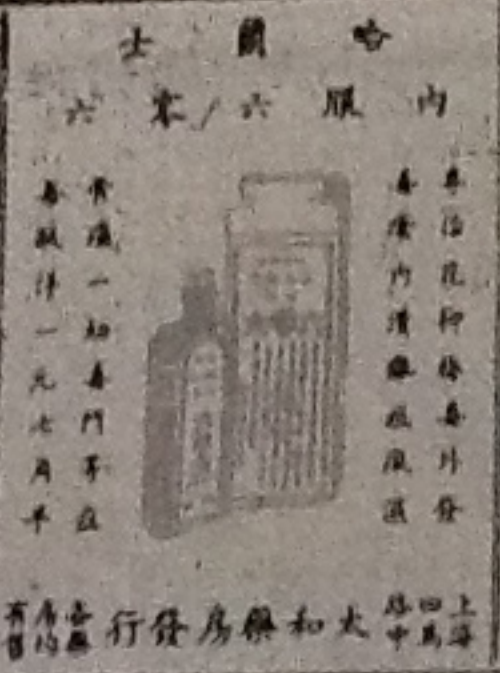 哈爾士
內服六/零六
專治花柳梅毒外發
毒瘡內潰瘋風濕
骨痛一切毒門等症
每瓶洋一元七角半
上海四馬路中
太和藥房發行
各藥房均有售